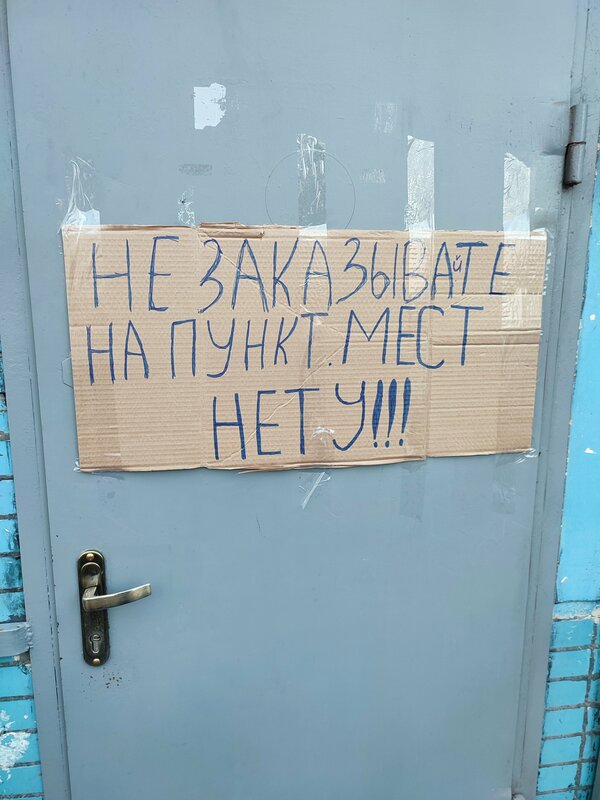 НЕ ЗАКАЗЫВАЙТЕ
НА ПУНКТ. МЕСТ
НЕТУ!!!